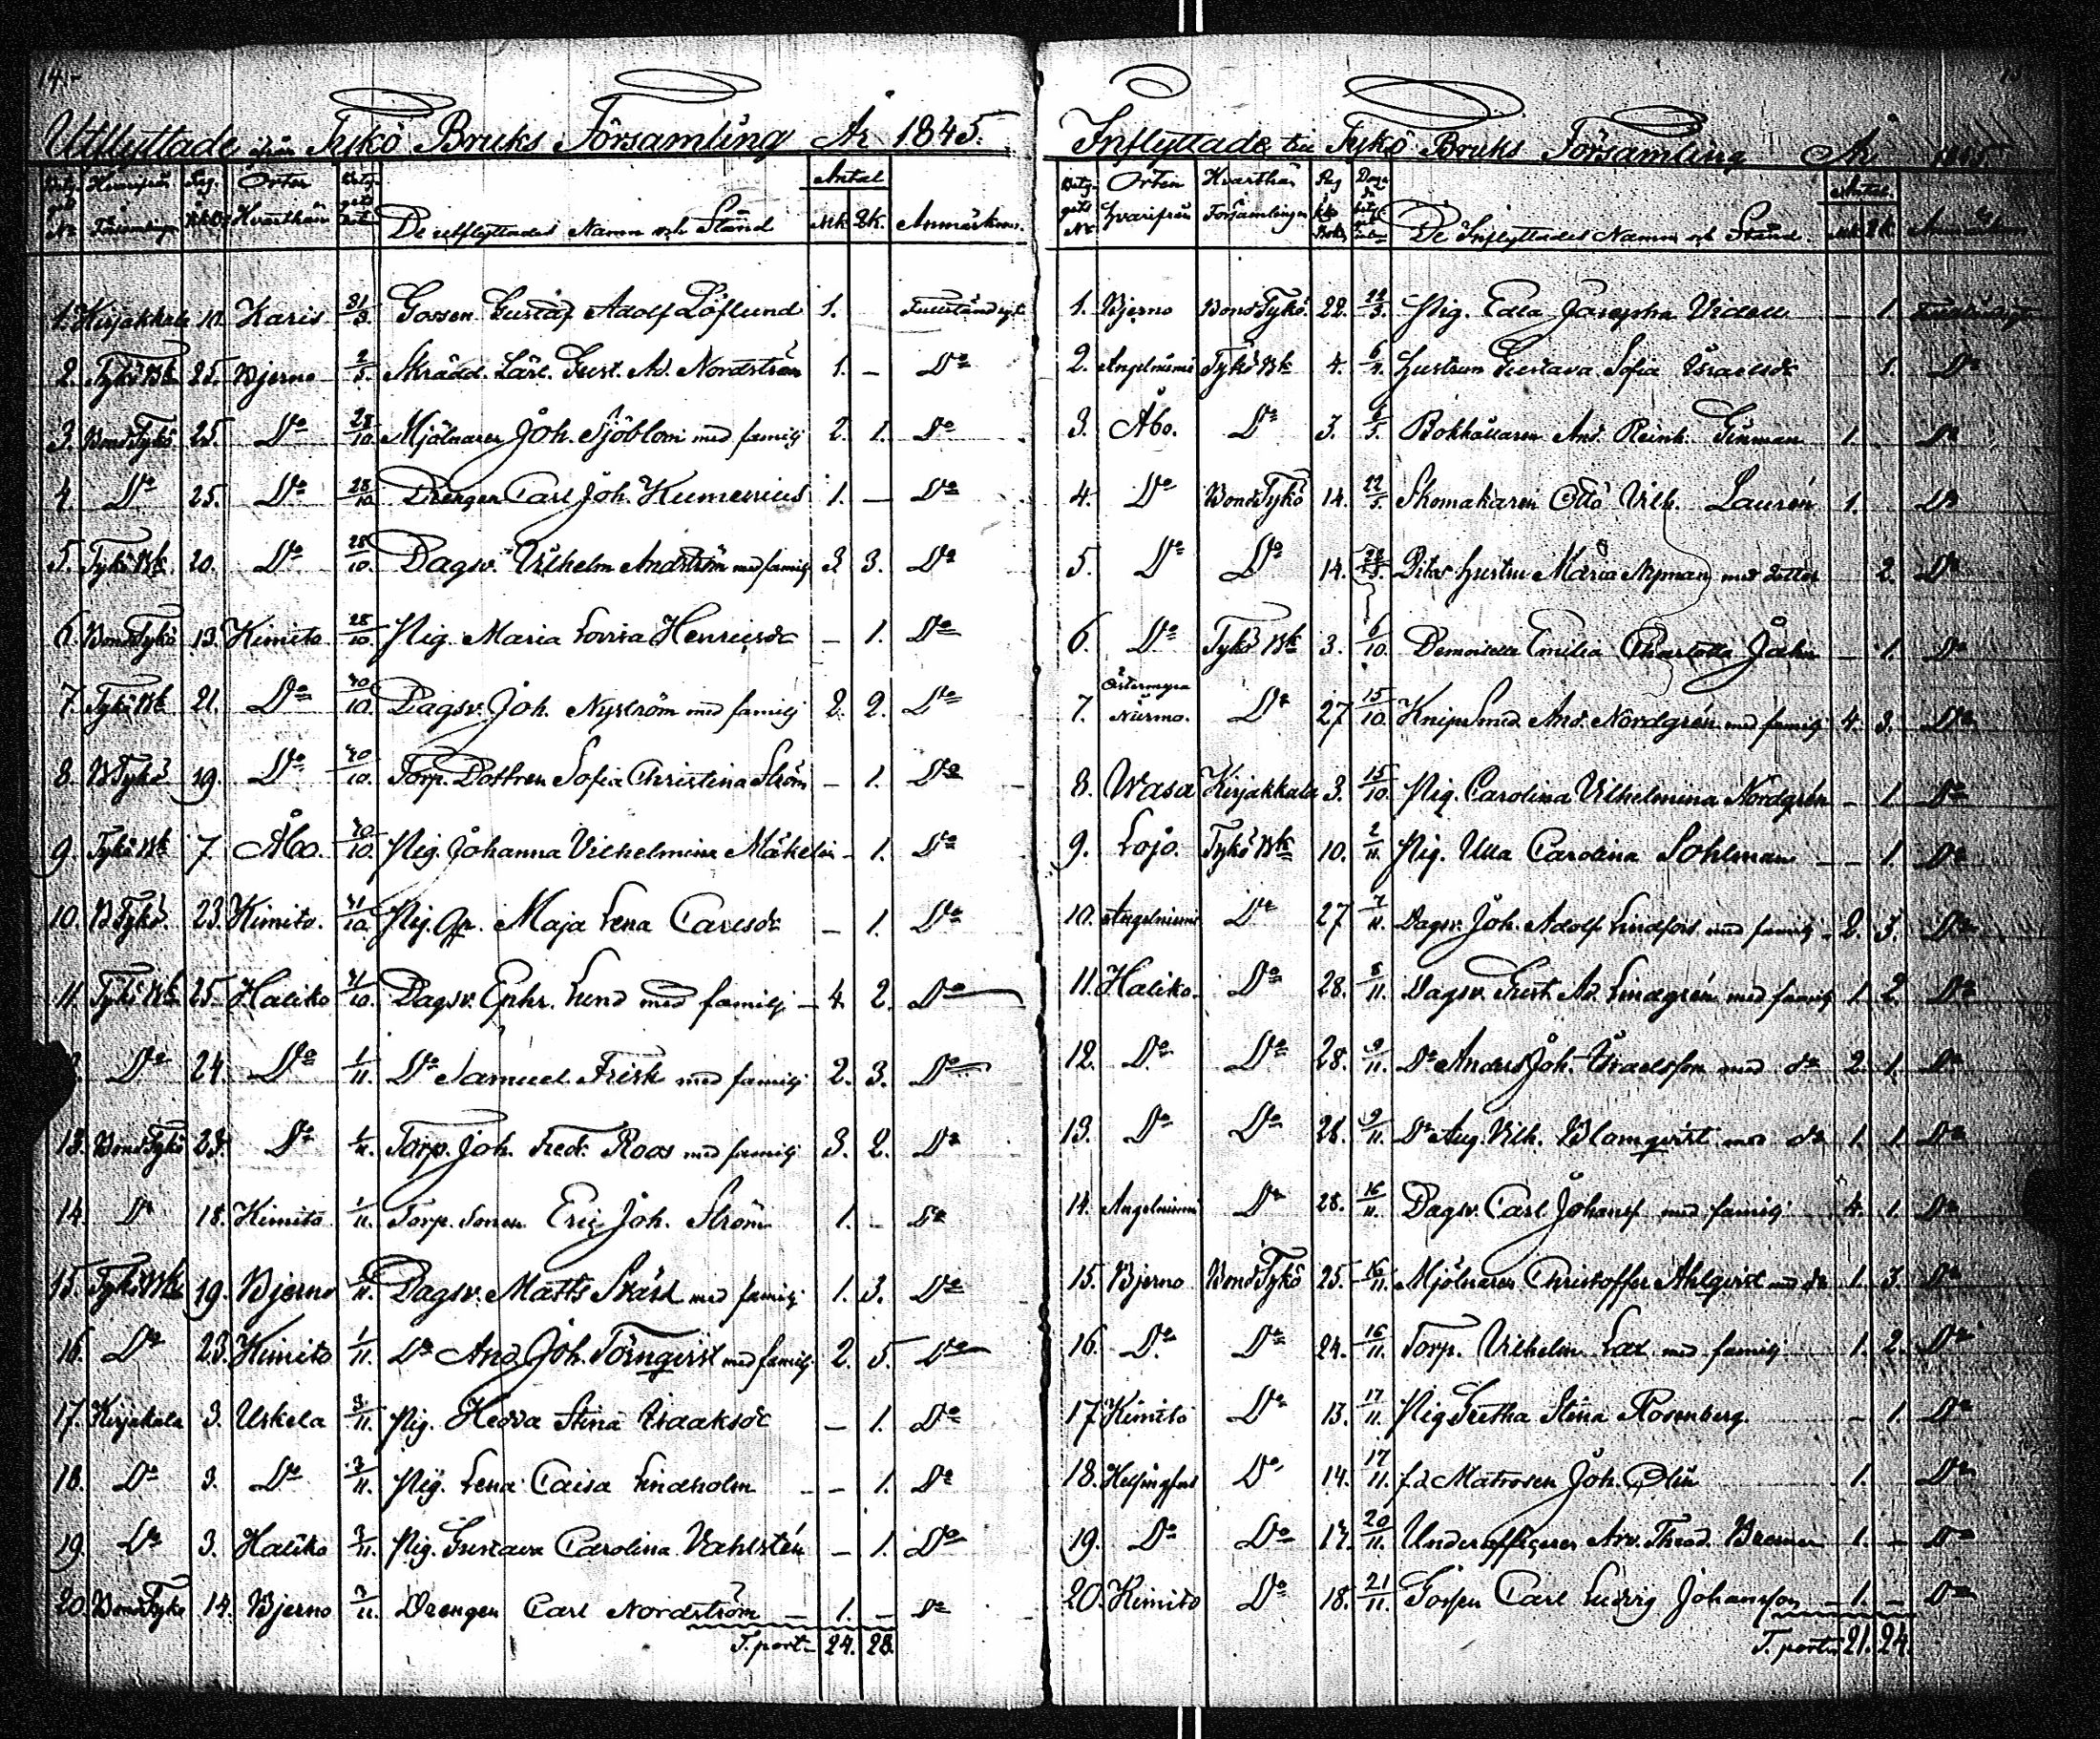 14.
Utflyttade ifrån Tykö Bruks Församling År 1845.
Betygets No Hvarifrån Församlingen Pag. Orten Hvarthän Betygets De utflyttades Namn och Stånd Antal Mk. Qk. Anmärkning.
1. Kirjakkala 10. Karis 31/3. Gossen Gustaf Adolf Löflund 1. Fullständigt
2. Tykö Bk 25. Bjerno 2/5. Skrädd. Lärl. Gust. Ad. Nordström 1. – Do
3. Bonds Tykö 25. Do 28/10. Mjölnaren Joh. Sjöblom med familj 2. 1. Do
4. Do 25. Do 28/10. Drengen Carl Joh. Kumenius 1. – Do
5. Tykö Bk. 20. Do 28/10. Dagsv. Vilhelm Andström med familj 2 3. Do
6. Bonds Tykö 13. Kimito 28/10. Pig. Maria Lovisa Henricsdr – 1. Do
7. Tykö Bk 21. Do 30/10. Dagsv. Joh. Nyström med familj 2. 2. Do
8. B Tykö 19. Do 30/10. Torp. Dottren Sofia Christina Ström – 1. Do
9. Tykö Bk 7. Åbo. 30/10. Pig. Johanna Vilhelmina Mäkelin – 1. Do
10. B Tykö. 23. Kimito. 31/10. Pig. Maja Lena Carlsdr – 1. Do
11. Tykö Bk 25. Haliko 31/10. Dagsv. Ephr. Lund med familj – 4. 2. Do
Do 24. Do 1/11. Do Samuel Frisk med familj 2. 3. Do
13. Bonds Tykö 23. Do 1/11. Torp. Joh. Fred. Roos med familj 3. 2. Do
14. Do 18. Kimito 1/11. Torp. Sonen Eric Joh. Ström 1. – Do
15. Tykö Bk 19. Bjerno /11. Dagsv. Matts Skärd med familj 1. 3. Do
16. Do 23. Kimito 1/11. Do And. Joh. Törnqvist med familj 2. 5. Do
17. Kirjakala 3. Uskela 3/11. Pig. Hedda Stina Isaaksdr – 1. Do
18. Do 3. Do 3/11. Pig. Lena Caisa Lindholm – 1. Do
19. Do 3. Haliko 3/11. Pig. Gustava Carolina Vahlstén – 1. Do
20. Bonds Tykö 14. Bjerno 3/11. Drengen Carl Nordström – 1. – Do
T. port. 24. 28.
Inflyttade till Tykö Bruks Församling År 1845.
Betygets No Orten Hvarifrån Hvarthän Församlingen Pag De Inflyttades Namn och Stånd. Antal. Mk. Qk. Anmärkning
1. Bjerno Bonds Tykö. 22. 22/3. Pig. Edla Josepha Videll – 1. Fullständigt
2. Angelniemi Tykö Bk 4. 6/4. Hustrun Gustava Sofia Israelsdr 1. Do
3. Åbo. Do 3. 6/5. Bokhållaren And. Reinh. Finman 1. Do
4. Do Bonds Tykö 14. 22/5. Skomakaren Otto Vilh. Laurén 1. Do
5. Do Do 14. 22/5. Ditos hustru Maria Nyman med dotter 2. Do
6. Do Tykö Bk 3. 6/10. Demoiselle Emilia Charlotta Jahn – 1. Do
7. Östermyra Nurmo. Do 27 15/10. Knipsmed And. Nordgrén med familj 4. 3. Do
8. Wasa Kirjakkala 3. 15/10. Pig. Carolina Vilhelmina Nordgrén – 1 Do
9. Lojo. Tykö Bk 10. 2/11. Pig. Ulla Carolina Sohlman – – 1. Do
10. Angelniemi Do 27 7/11. Dagsv. Joh. Adolf Lindfors med familj 2. 3. Do
11. Haliko. Do 28. 8/11. Dagsv. Gust. Ad. Lindgrén med familj 1. 2. Do
12. Do Do 28. 9/11. Do Anders Joh. Israelsson med do 2. 1. Do
13. Do Do 26. 9/11. Do Aug. Vilh. Blomqvist med do 1. 1. Do
14. Angelniemi Do 28. 16/11. Dagsv. Carl Johanss med familj 4. 1. Do
15. Bjerno Bonds Tykö 25. 16/11. Mjölnaren Christoffer Ahlqvist med do 1. 3. Do
16. Do Do 24. 16/11. Torp. Vilhelm Lax med familj 1. 2. Do
17. Kimito Do 13. 17/11. Pig Gretha Stina Rosenberg. – 1. Do
18. Helsingfors Do 14. 17/11. f.d. Matrosen Joh. Blin 1. Do
19. Do Do 17. 20/11. Underofficeren Arv. Theod. Bremer 1. – Do
20. Kimito Do 18. 21/11. Gossen Carl Ludvig Johansson – 1. – Do
T. port. 21. 24.